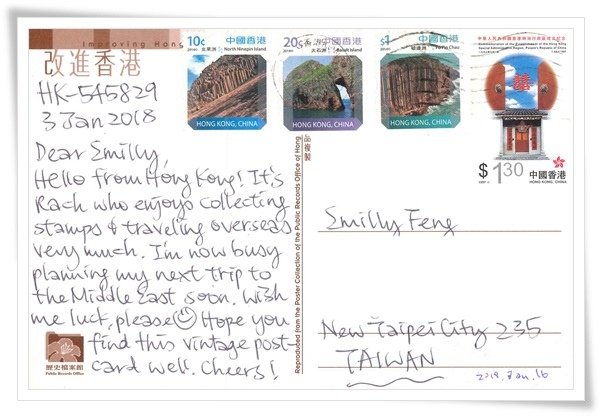 Improving Hong
改進香港
HK-545829
3 Jan 2018
Dear Emilly,
Hello from Hong Kong! It's
Rach who enjoys collecting
stamps & traveling overseas
very much. I'm now busy
planning my next trip to
the Middle East soon. Wish
me luck, please☺ Hope you
find this vintage post-
card well. Cheers!
歷史檔案館
Public Records Office
品複製
Reproduced from the Poster Collection of the Public Records Office of Hong
10¢
中國香港
North Ninepin Island
HONG KONG, CHINA
20¢
大石洲
Basalt Island
HONG KONG, CHINA
$1
中國香港
HONG KONG, CHINA
$1.30
中國香港
HONG KONG, CHINA
Emilly Feng
New Taipei City 235
TAIWAN
2018. Jan. 16